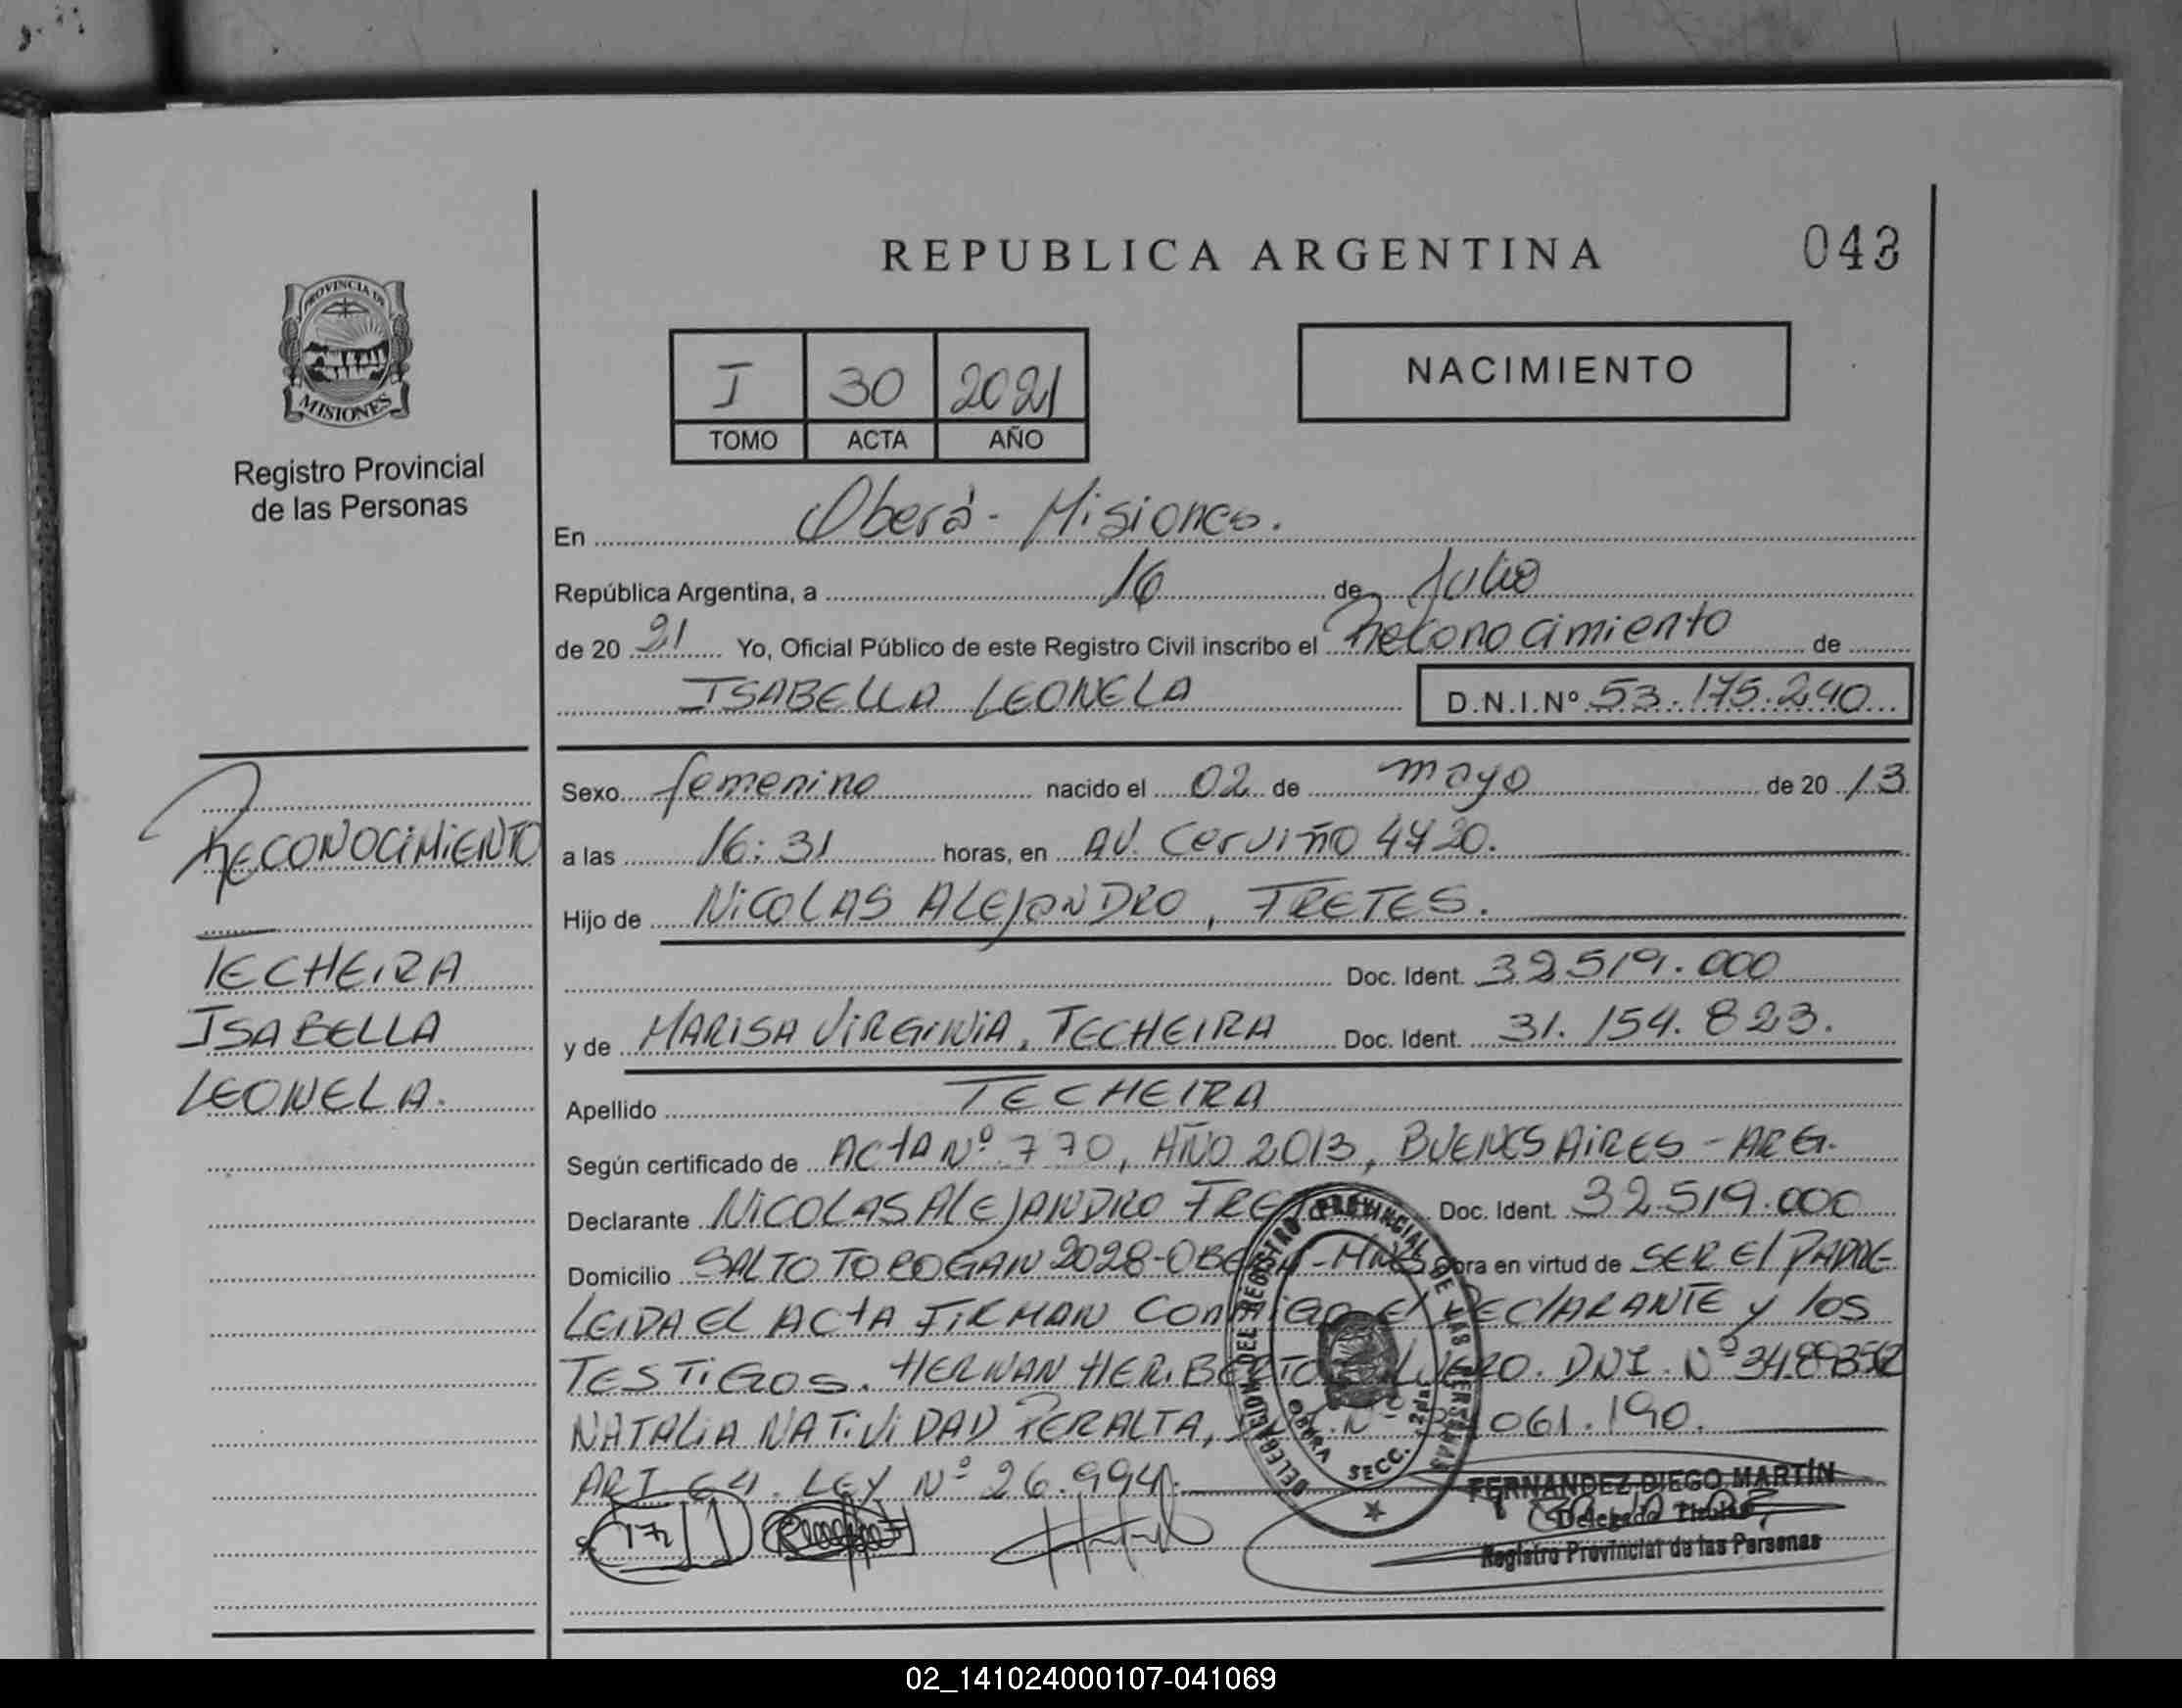 REPUBLICA ARGENTINA
043
PROVINCIA DE
MISIONES
Registro Provincial
de las Personas
I 30 2021
TOMO ACTA AÑO
NACIMIENTO
En Oberá - Misiones.
República Argentina, a 16 de Julio
de 20 21 Yo, Oficial Público de este Registro Civil inscribo el Reconocimiento de
ISABELLA LEONELA D.N.I.Nº 53.175.240
RECONOCIMIENTO
TECHEIRA
ISABELLA
LEONELA.
Sexo femenino nacido el 02 de mayo de 20 13
a las 16:31 horas, en AV. Cerviño 4720.
Hijo de NICOLAS ALEJANDRO, FRETES.
Doc. Ident. 32.519.000
y de MARISA VIRGINIA, TECHEIRA Doc. Ident. 31.154.823.
Apellido TECHEIRA
Según certificado de ACTA Nº 770, AÑO 2013, BUENOS AIRES - ARG.
Declarante NICOLAS ALEJANDRO Doc. Ident. 32.519.000
Domicilio SALTO 2028-OBERA-MNES Obra en virtud de SER El PADRE
LEIDA EL ACTA FIRMAN CONMIGO El DECLARANTE y los
TESTIGOS. HERNAN HERIBERTO DNI. Nº
NATALIA NATIVIDAD PERALTA, 061.190.
ART 64. LEY Nº 26.994.
DELEGACION DEL REGISTRO PROVINCIAL DE LAS PERSONAS
OBERA SECC. 2da.
FERNANDEZ DIEGO MARTÍN
Delegado Titular
Registro Provincial de las Personas
02_141024000107-041069